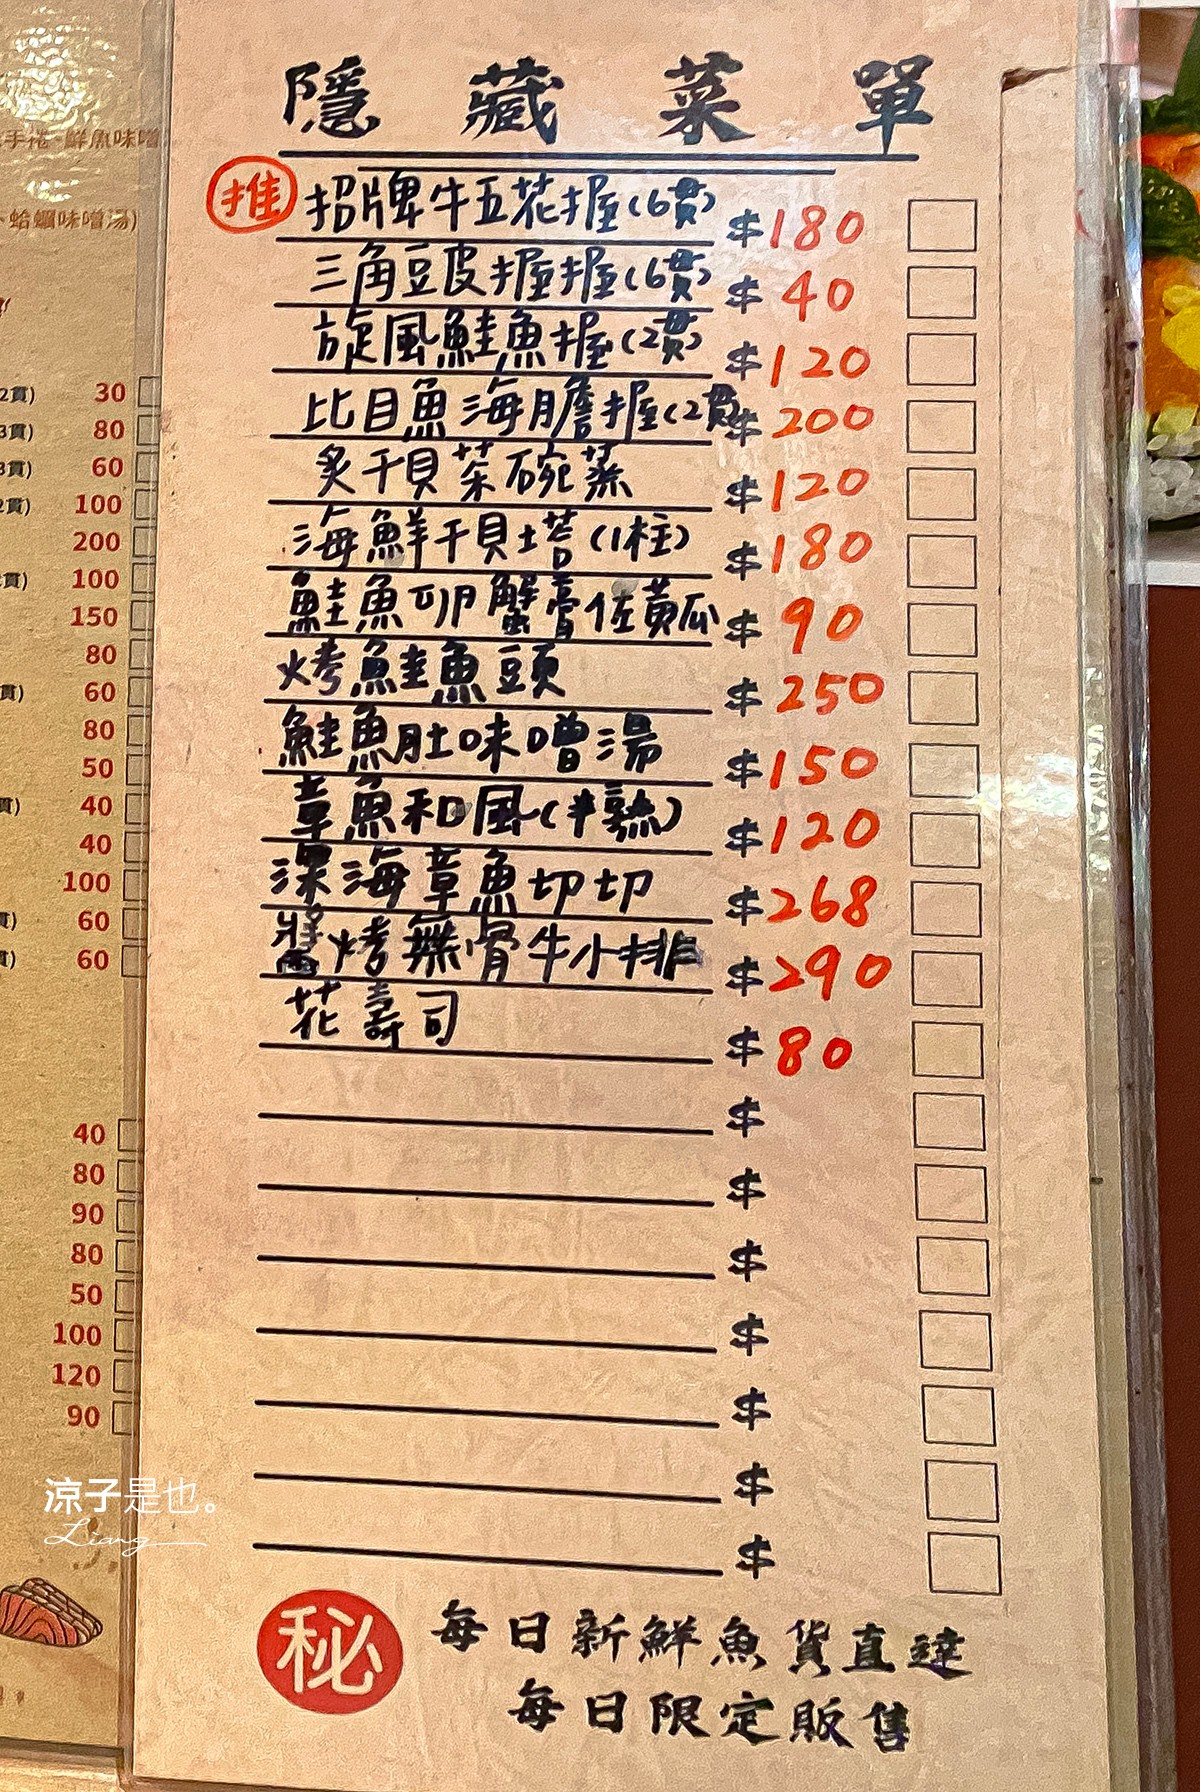 隱藏菜單
推 招牌牛五花握(6貫) $180
三角豆皮握握(6貫) $40
旋風鮭魚握(2貫) $120
比目魚海膽握(2貫) $200
炙干貝茶碗蒸 $120
海鮮干貝塔(1柱) $180
鮭魚卵蟹膏佐黃瓜 $90
烤鮭魚頭 $250
鮭魚肚味噌湯 $150
章魚和風(半熟) $120
深海章魚切切 $268
醬烤無骨牛小排 $290
花壽司 $80
$
$
$
$
$
$
$
秘 每日新鮮魚貨直達
每日限定販售
手捲·鮮魚味噌
蛤蠣味噌湯)
2貫) 30
3貫) 80
3貫) 60
2貫) 100
200
貫) 100
150
80
貫) 60
80
50
貫) 40
40
100
貫) 60
貫) 60
40
80
90
80
50
100
120
90
涼子是也。
Liang